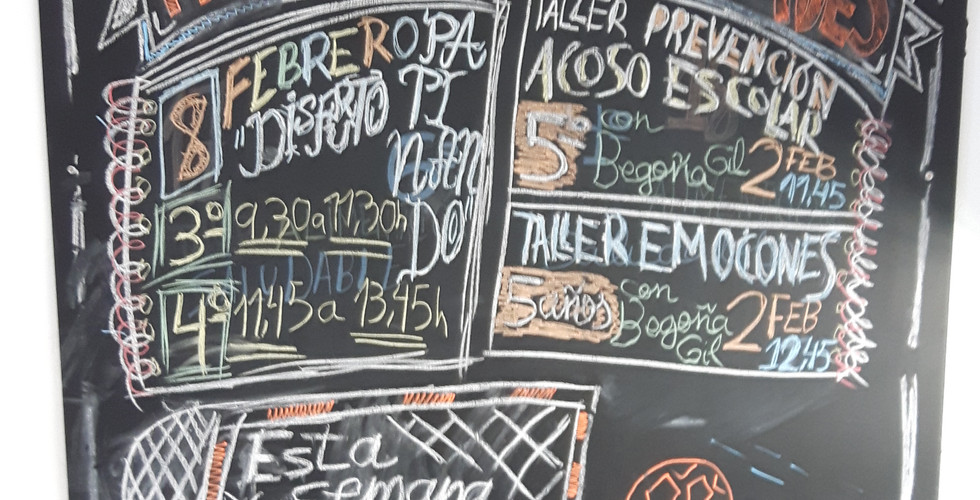 8 FEBRERO
"DISFRUTO PATINANDO"
3º 9,30 a 11,30h
4º 11,45 a 13,45h
TALLER PREVENCIÓN
ACOSO ESCOLAR
5º con
Begoña Gil 2 FEB
11,45
TALLER EMOCIONES
5 años con
Begoña
Gil 2 FEB
12,45
Esta
semana